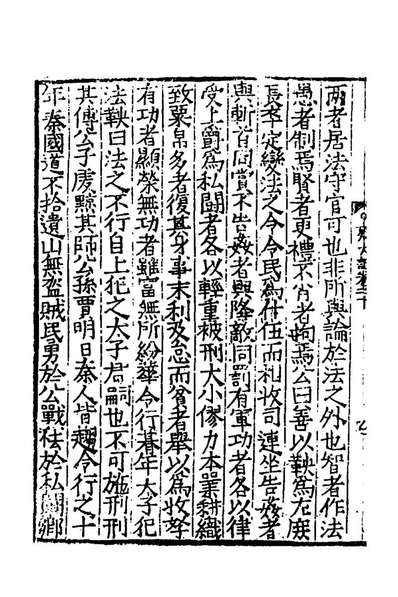 兩者居法守官可也非所與論於法之外也智者作法
愚者制焉賢者更禮不肖者拘焉公曰善以鞅為左庶
長卒定變法之令令民為什伍而相收司連坐告姦者
與斬首同賞不告姦者與降敵同罰有軍功者各以律
受上爵為私鬪者各以輕重被刑大小僇力本業耕織
致粟帛多者復其身事末利及怠而貧者舉以為收孥
有功者顯榮無功者雖富無所紛華令行朞年太子犯
法鞅曰法之不行自上犯之太子君嗣也不可施刑刑
其傅公子虔黥其師公孫賈明日秦人皆趨令行之十
年秦國道不拾遺山無盜賊民勇於公戰怯於私鬪鄉